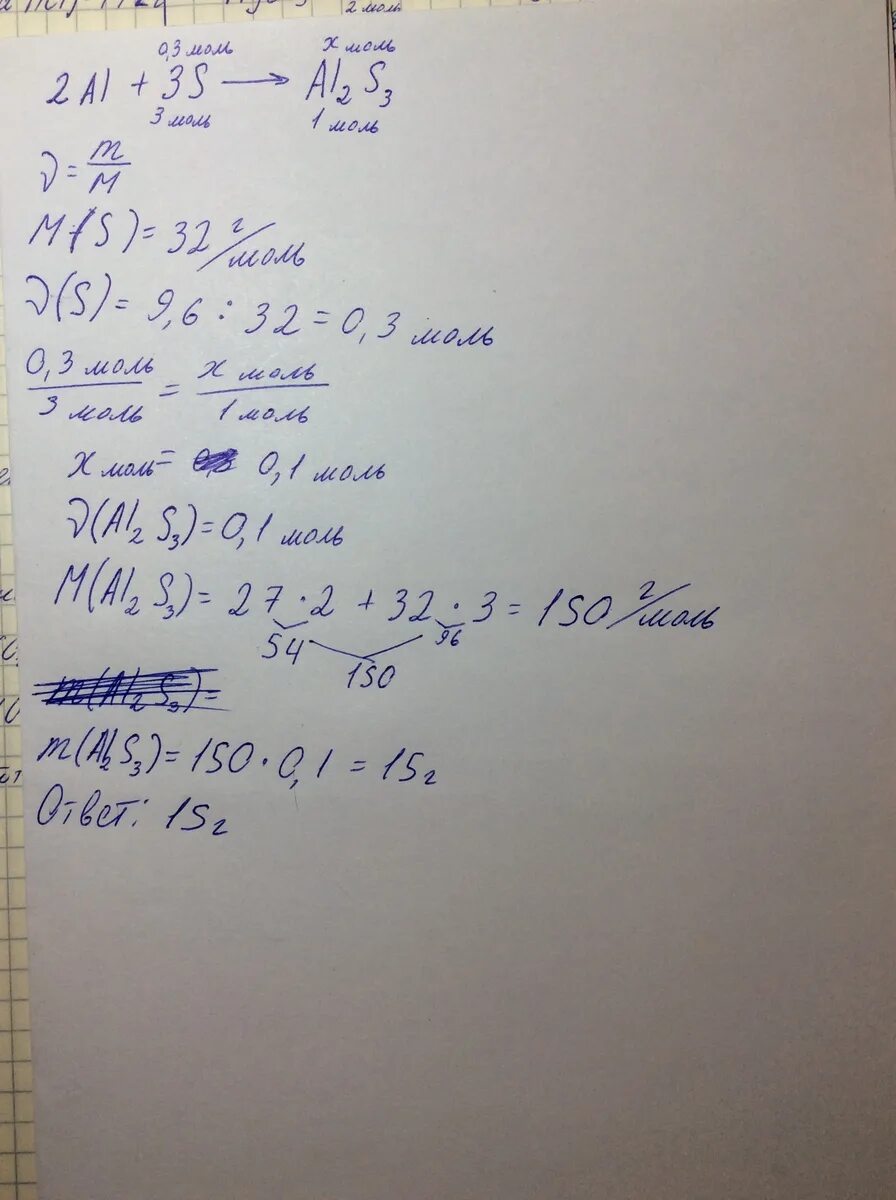 2 моль
0,3 моль x моль
2Al + 3S ⟶ Al₂S₃
3 моль 1 моль
ν = m/M
M(S) = 32 г/моль
ν(S) = 9,6 : 32 = 0,3 моль
0,3 моль/3 моль = x моль/1 моль
x моль = 0,1 моль
ν(Al₂S₃) = 0,1 моль
M(Al₂S₃) = 27 · 2 + 32 · 3 = 150 г/моль
54 96
150
m(Al₂S₃) =
m(Al₂S₃) = 150 · 0,1 = 15г
Ответ: 15г